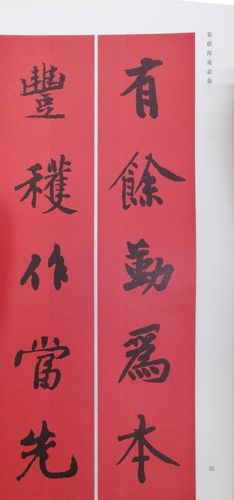 有餘勤爲本
豐穫作當先
春联挥毫必备
20